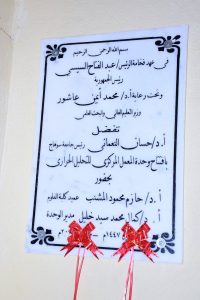 بسم الله الرحمن الرحيم
فى عهد فخامة الرئيس / عبد الفتاح السيسى
رئيس الجمهورية
وتحت رعاية أ.د / محمد أيمن عاشور
وزير التعليم العالى والبحث العلمى
تفضل
أ.د / حسان النعمانى رئيس جامعة سوهاج
بافتتاح وحدة المعمل المركزى للتحليل الحرارى
بحضور
أ.د / حازم محمود المشنب عميد كلية العلوم
أ.د / كمال محمد سيد خليل مدير الوحدة
١٤٤٧